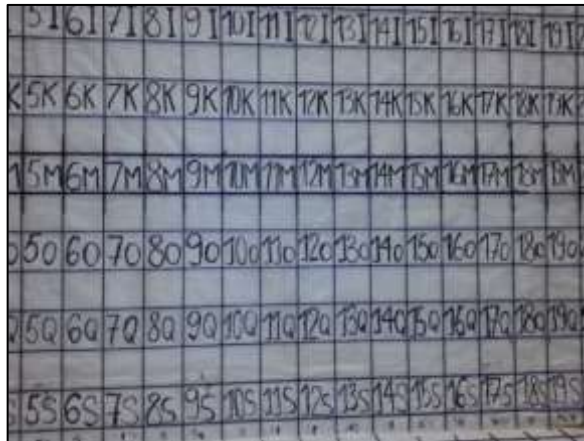 5I 6I 7I 8I 9I 10I 11I 12I 13I 14I 15I 16I 17I 18I 19I
K 5K 6K 7K 8K 9K 10K 11K 12K 13K 14K 15K 16K 17K 18K 19K
5M 6M 7M 8M 9M 10M 11M 12M 13M 14M 15M 16M 17M 18M 19M
5O 6O 7O 8O 9O 10O 11O 12O 13O 14O 15O 16O 17O 18O 19O
Q 5Q 6Q 7Q 8Q 9Q 10Q 11Q 12Q 13Q 14Q 15Q 16Q 17Q 18Q 19Q
S 5S 6S 7S 8S 9S 10S 11S 12S 13S 14S 15S 16S 17S 18S 19S